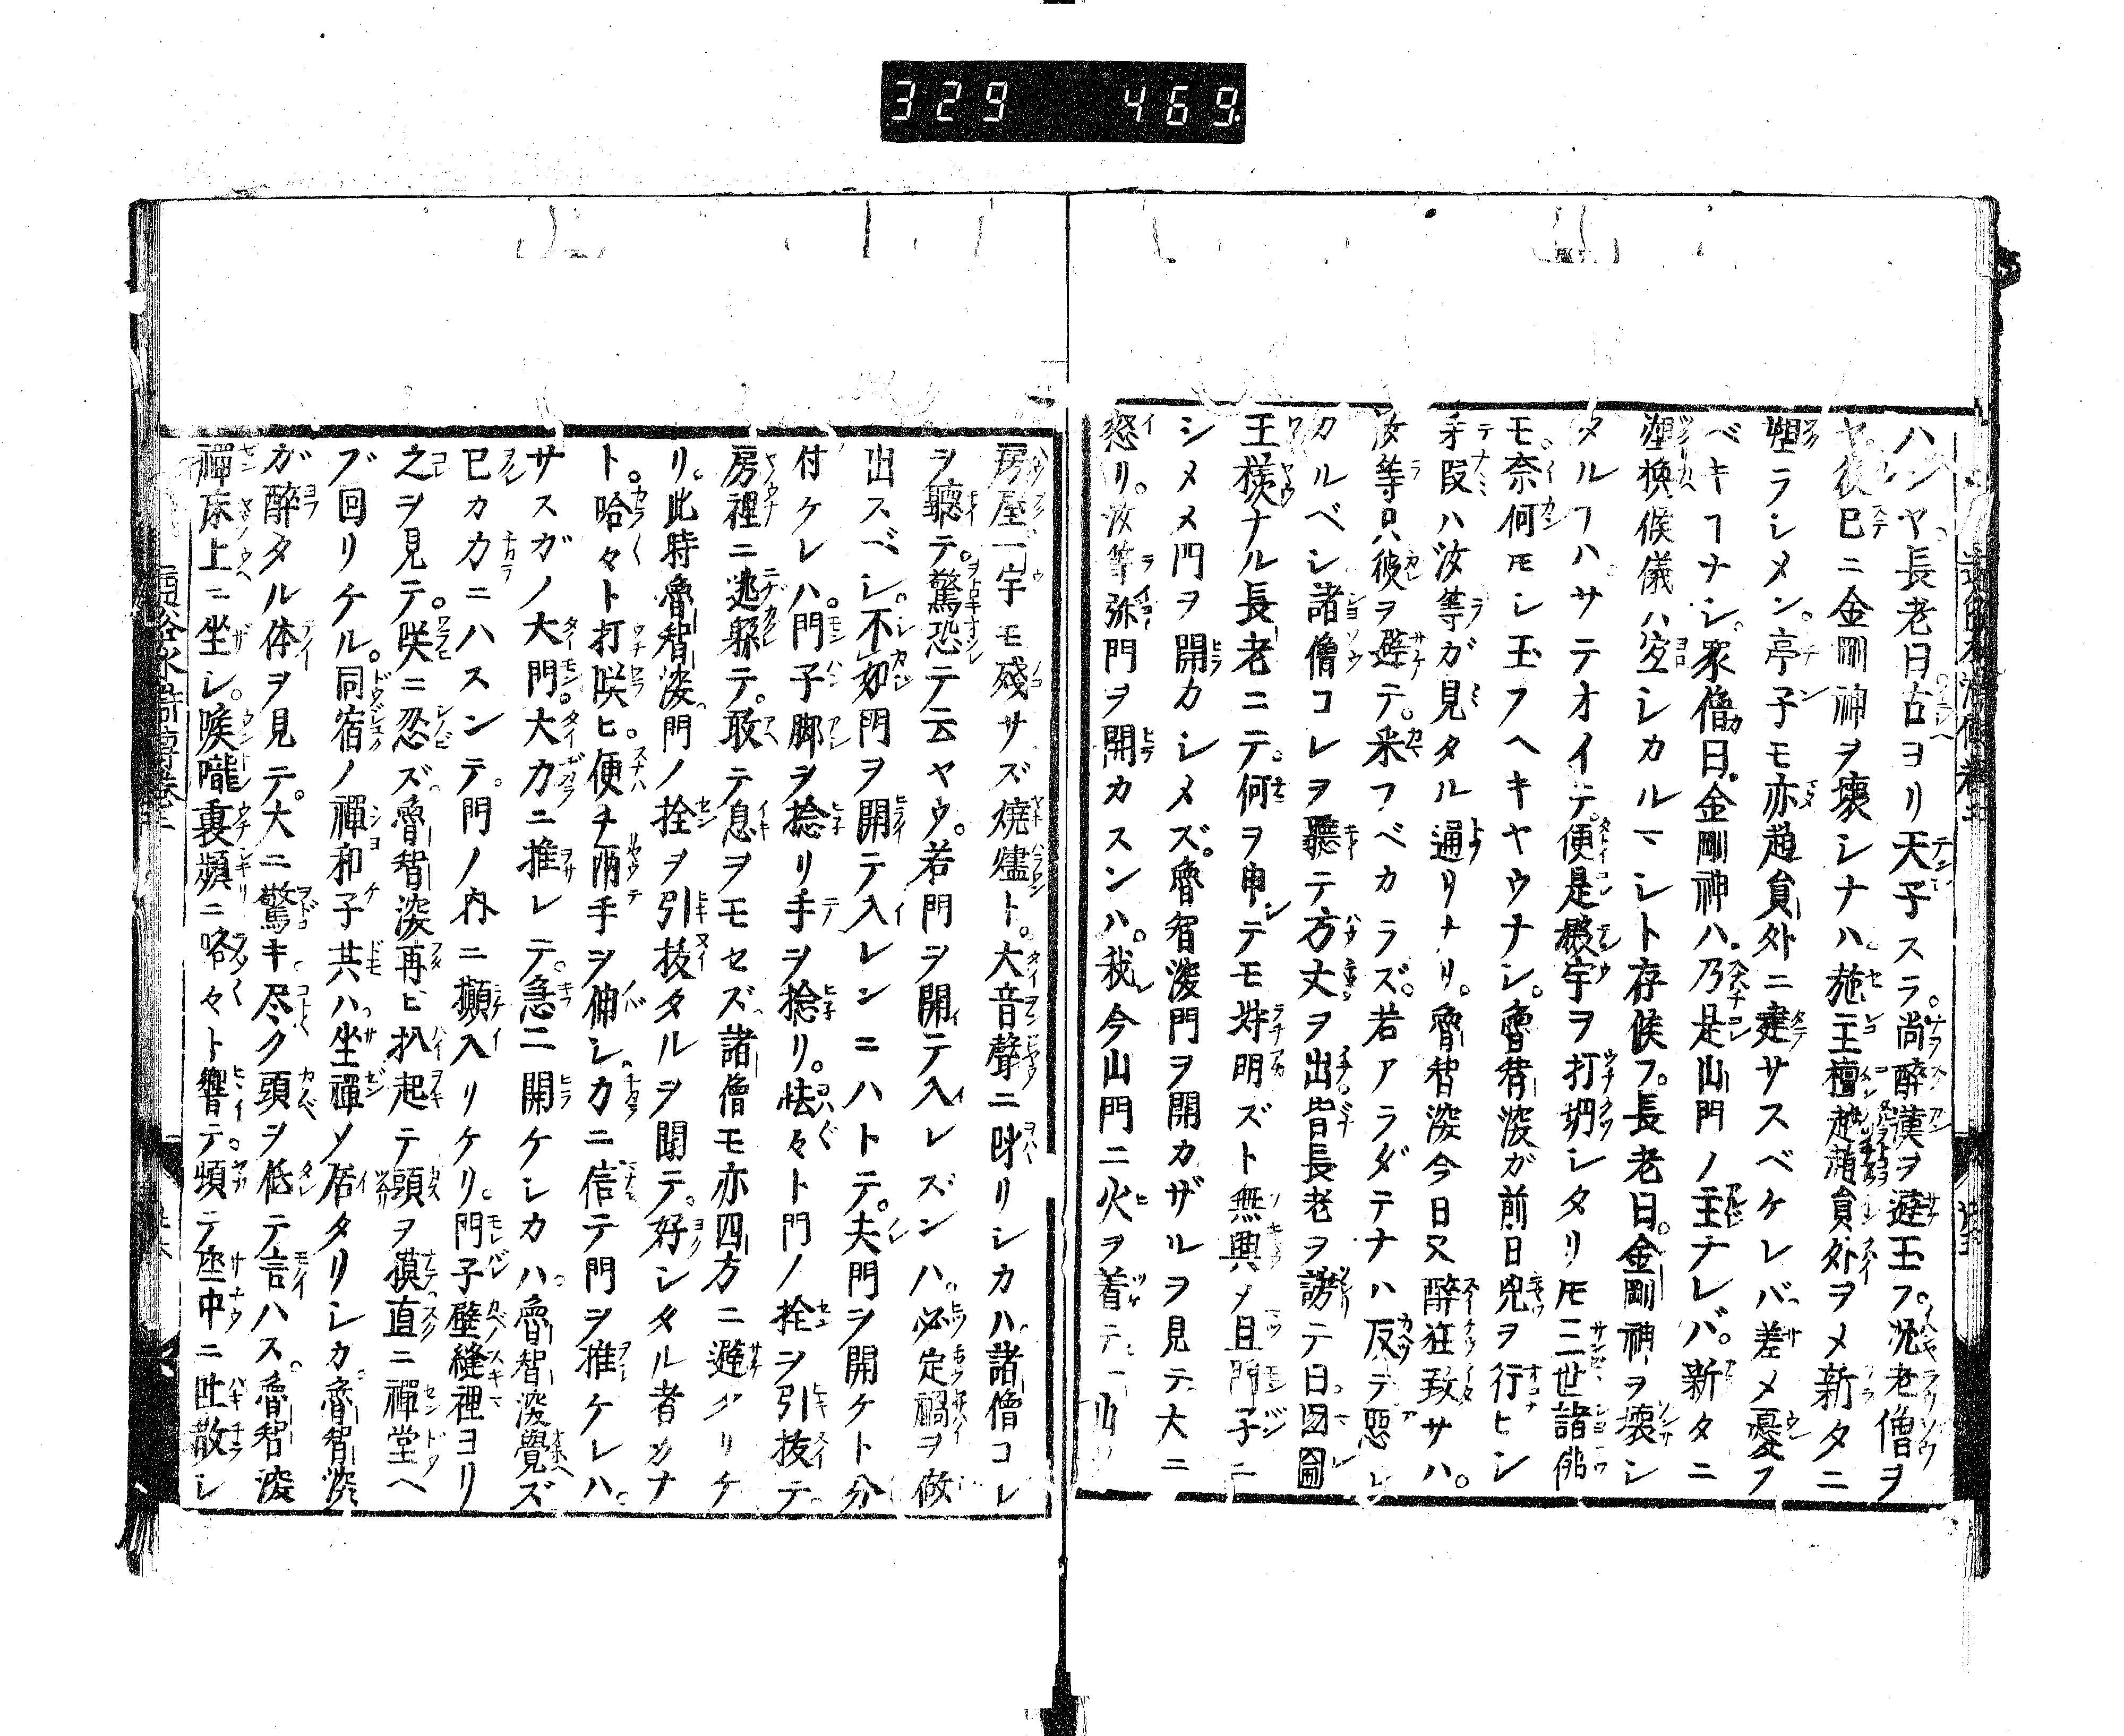 329 469
ハンヤ長老曰古ヨリ天子スラ。尚醉漢ヲ避玉フ。况老僧ヲ
ヤ。後巳ニ金剛神ヲ壞シナハ。施主檀越趙員外ヲメ新タニ
塑ラシメン。亭子モ亦趙員外ニ建サスベケレバ差メ憂フ
ベキフナシ。衆僧曰。金剛神ハ。乃是山門ノ主ナレバ。新タニ
塑換候儀ハ空シカルマシト存候フ。長老曰。金剛神ヲ壞シ
タルフハ。サテオイテ。便是殿宇ヲ打塌シタリ𪜈三世諸佛
モ奈何𪜈シ玉フヘキヤウナシ。魯智深ガ前日兇ヲ行ヒシ
手段ハ汝等ガ見タル通リナリ。魯智深今日又醉狂致サハ。
汝等只彼ヲ避テ。采フベカラズ。若アラダテナハ反テ惡シ
カルベシ諸僧コレヲ聽テ方丈ヲ出皆長老ヲ謗テ曰囫圇
王樣ナル長老ニテ。何ヲ申シテモ埒明ズト無興メ且門子ニ
シメメ門ヲ開カシメズ。魯智深門ヲ開カザルヲ見テ大ニ
怒リ。汝等弥門ヲ開カスンハ。我今山門ニ火ヲ着テ一山ノ
房屋一宇モ殘サズ燒燼ト。大音聲ニ呌リシカハ諸僧コレ
ヲ聽テ。驚恐テ云ヤウ。若門ヲ開テ入レズンハ。必定禍ヲ做
出スベシ。不如門ヲ開テ入レンニハトテ。夫門ヲ開ケト分
付ケレハ。門子脚ヲ捻リ手ヲ捻リ。怯々ト門ノ栓ヲ引抜テ
房裡ニ逃躱テ。敢テ息ヲモセズ諸僧モ亦四方ニ避タリケ
リ。此時魯智深門ノ拴ヲ引抜タルヲ聞テ。好シタル者カナ
ト。哈々ト打咲ヒ。便チ兩手ヲ伸シ。力ニ信テ門ヲ推ケレハ。
サスガノ大門。大力ニ推レテ。急ニ開ケシカハ。魯智深覺ズ
已カ力ニハスンテ。門ノ内ニ攧入リケリ。門子壁縫裡ヨリ
之ヲ見テ。咲ニ忍ズ魯智深再ヒ扒起テ頭ヲ摸直ニ禪堂ヘ
ブ回リケル。同宿ノ禪和子共ハ坐禪メ居タリシカ。魯智深
ガ醉タル体ヲ見テ。大ニ驚キ。尽ク頭ヲ低テ言ハス。魯智深
禪床上ニ坐シ。喉嚨裏頻ニ咯々ト響テ。頓テ座中ニ吐散シ